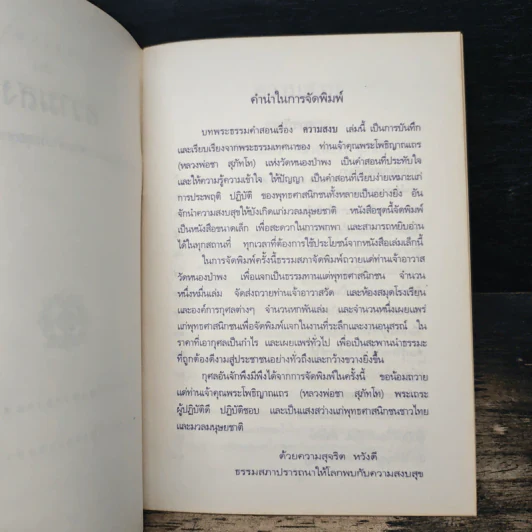 คำนำในการจัดพิมพ์
บทพระธรรมคำสอนเรื่อง ความสงบ เล่มนี้ เป็นการบันทึก
และเรียบเรียงจากพระธรรมเทศนาของ ท่านเจ้าคุณพระโพธิญาณเถร
(หลวงพ่อชา สุภัทโท) แห่งวัดหนองป่าพง เป็นคำสอนที่ประทับใจ
และให้ความรู้ความเข้าใจ ให้ปัญญา เป็นคำสอนที่เรียบง่ายเหมาะแก่
การประพฤติ ปฏิบัติ ของพุทธศาสนิกชนทั้งหลายเป็นอย่างยิ่ง อัน
จักนำความสงบสุขให้บังเกิดแก่มวลมนุษยชาติ หนังสือชุดนี้จัดพิมพ์
เป็นหนังสือขนาดเล็ก เพื่อสะดวกในการพกพา และสามารถหยิบอ่าน
ได้ในทุกสถานที่ ทุกเวลาที่ต้องการใช้ประโยชน์จากหนังสือเล่มเล็กนี้
ในการจัดพิมพ์ครั้งนี้ธรรมสภาจัดพิมพ์ถวายแด่ท่านเจ้าอาวาส
วัดหนองป่าพง เพื่อแจกเป็นธรรมทานแด่พุทธศาสนิกชน จำนวน
หนึ่งหมื่นเล่ม จัดส่งถวายท่านเจ้าอาวาสวัด และห้องสมุดโรงเรียน
และองค์การกุศลต่างๆ จำนวนห้าพันเล่ม และจำนวนหนึ่งเผยแพร่
แก่พุทธศาสนิกชนเพื่อจัดพิมพ์แจกในงานที่ระลึกและงานอนุสรณ์ ใน
ราคาที่เอากุศลเป็นกำไร และเผยแพร่ทั่วไป เพื่อเป็นสะพานนำธรรมะ
ที่ถูกต้องดีงามสู่ประชาชนอย่างทั่วถึงและกว้างขวางยิ่งขึ้น
กุศลอันจักพึงมีพึงได้จากการจัดพิมพ์ในครั้งนี้ ขอน้อมถวาย
แด่ท่านเจ้าคุณพระโพธิญาณเถร (หลวงพ่อชา สุภัทโท) พระเถระ
ผู้ปฏิบัติดี ปฏิบัติชอบ และเป็นแสงสว่างแก่พุทธศาสนิกชนชาวไทย
และมวลมนุษยชาติ
ด้วยความสุจริต หวังดี
ธรรมสภาปรารถนาให้โลกพบกับความสงบสุข